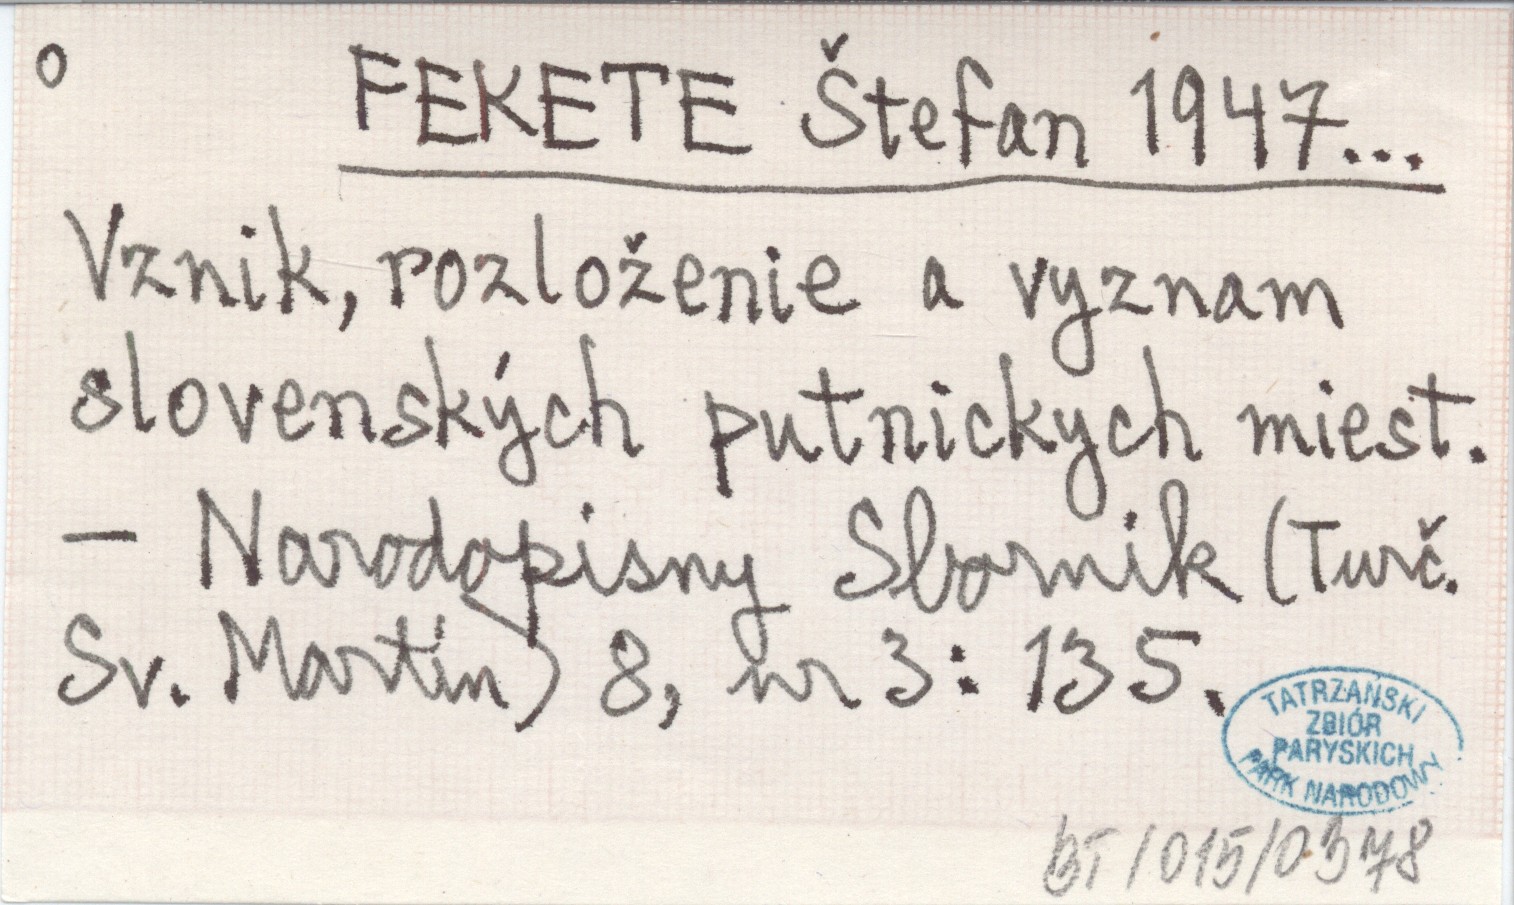 o FEKETE Štefan 1947...
Vznik, rozloženie a vyznam
slovenských putnickych miest.
— Narodopisny Sbornik (Turč.
Sv. Martin) 8, nr 3: 135.
TATRZAŃSKI
ZBIÓR
PARYSKICH
PARK NARODOWY
BT/015/0378